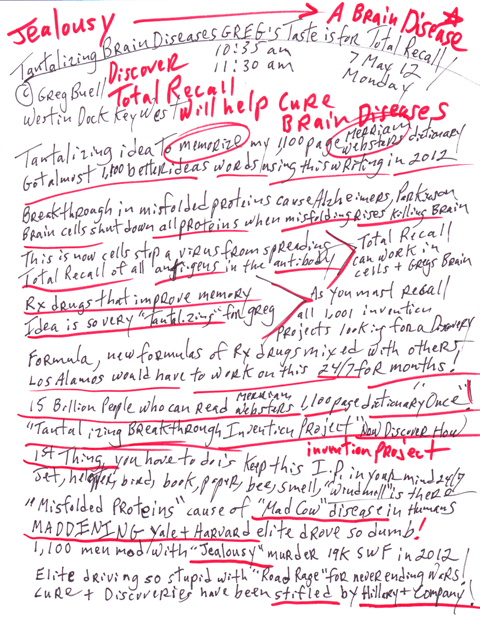 Jealousy → A Brain Disease
Tantalizing Brain Diseases GREG's Taste is for Total Recall!
10:35 am 7 May 12
Discover 11:30 am Monday
© Greg Buell Total Recall
Westin Dock Key West Will help Cure
BRAIN Diseases
Tantalizing idea To memorize my 1,100 page Merriam Websters dictionary
Got almost 1,100 better ideas words using this writing in 2012
Breakthrough in misfolded proteins cause Alzheimers, Parkinson
Brain cells shut down all proteins when misfolding rises killing Brain
This is now cells stop a virus from spreading
Total Recall of all antigens in the antibody
Total Recall
can work in
cells + Gregs Brain
Rx drugs that improve memory
Idea is so very "Tantalizing" for greg
As you must recall
all 1,001 invention
projects looking for a Discovery
Formula, new formulas of Rx drugs mixed with others
Los Alamos would have to work on this 24/7 for months!
15 Billion People who can read Merriam Websters 1,100 page dictionary "Once"!
"Tantalizing Breakthrough Invention Project" Now Discover How
invention project
1st Thing, you have to do is keep this I.P. in your mind 24/7
Jet, bird, book, paper, bee, smell, "Windmill" is there
"Misfolded Proteins" cause of "Mad Cow" disease in Humans
MADDENING Yale + Harvard elite drove so dumb!
1,100 men mod with "Jealousy" murder 19K SWF in 2012!
Elite driving so stupid with "Road Rage" for never ending wars!
Cure + Discoveries have been stified by Hillory + Company!